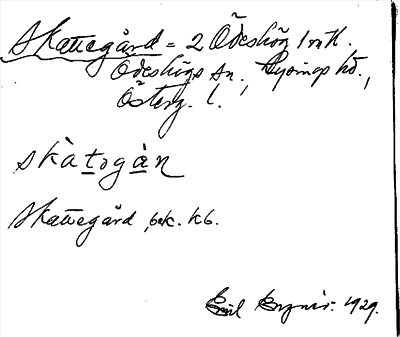 Skattegård = 2 Ödeshög 1 mtl.
Ödeshögs sn., Lysings hd.,
Österg. l.
skàtogàn
Skattegård, bek. kb.
Emil 1929.